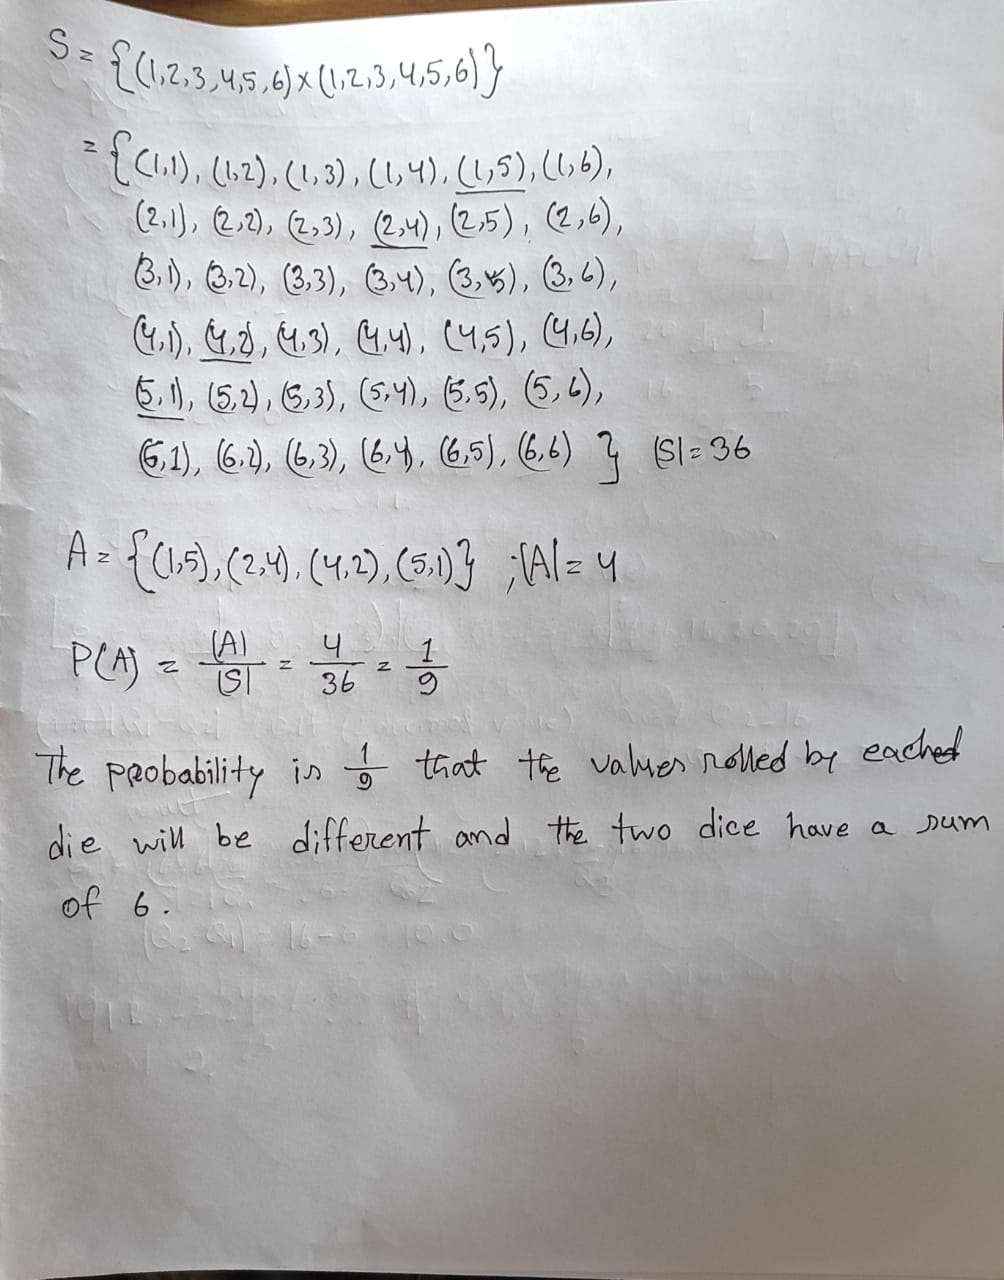 S = {(1,2,3,4,5,6) x (1,2,3,4,5,6)}
= {(1,1), (1,2), (1,3), (1,4), (1,5), (1,6),
(2,1), (2,2), (2,3), (2,4), (2,5), (2,6),
(3,1), (3,2), (3,3), (3,4), (3,5), (3,6),
(4,1), (4,2), (4,3), (4,4), (4,5), (4,6),
(5,1), (5,2), (5,3), (5,4), (5,5), (5,6),
(6,1), (6,2), (6,3), (6,4), (6,5), (6,6) } |S| = 36
A = {(1,5), (2,4), (4,2), (5,1)} ; |A| = 4
P(A) = |A|/|S| = 4/36 = 1/9
The probability is 1/9 that the values rolled by eached
die will be different and the two dice have a sum
of 6.